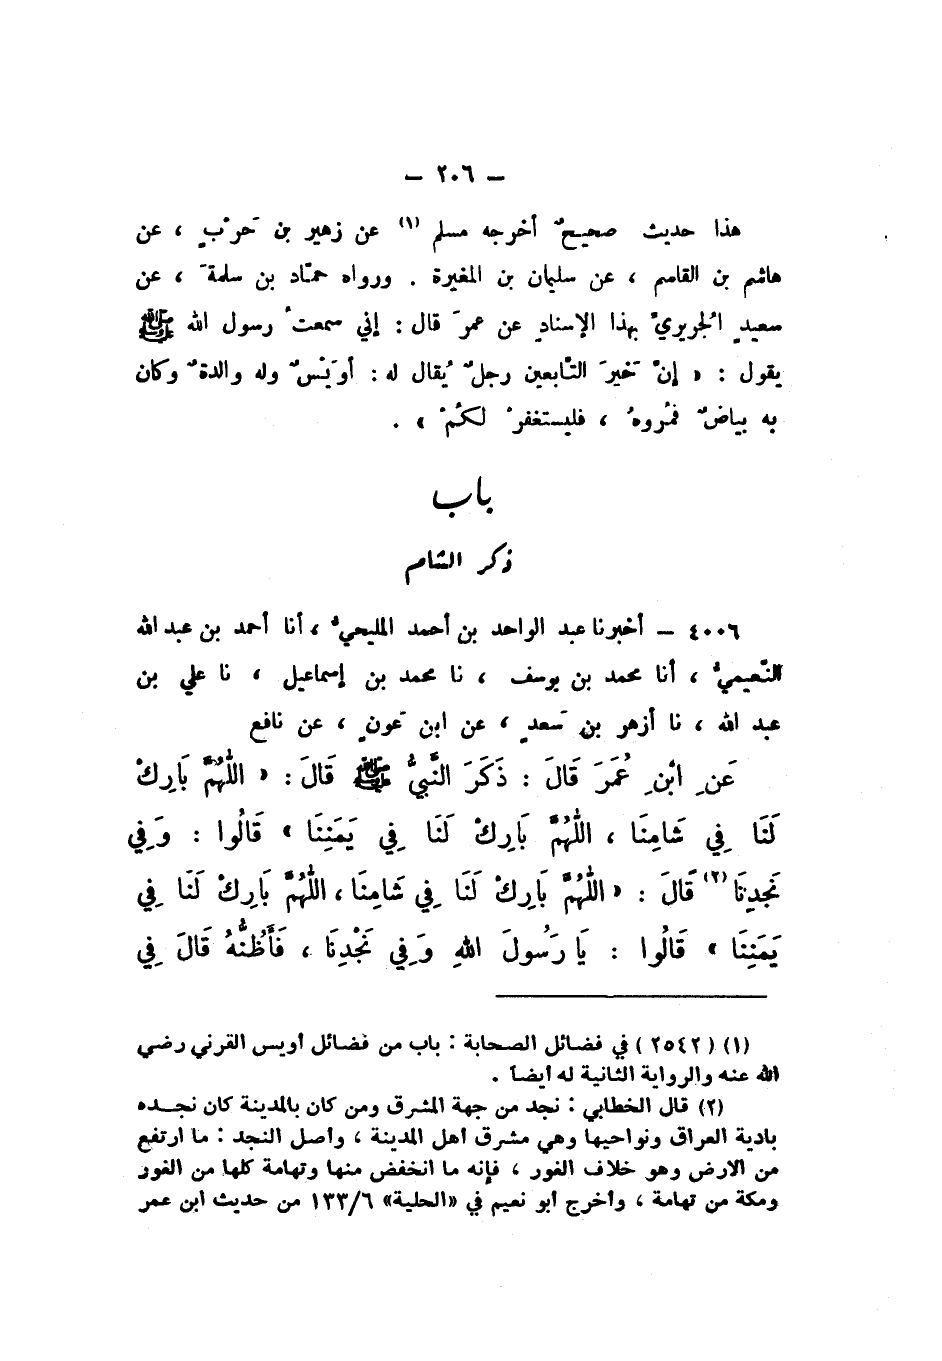 – ٢٠٦ –
هذا حديث صحيحٌ أخرجه مسلم (١) عن زهير بن حَرْبٍ ، عن
هاشم بن القاسم ، عن سليمان بن المغيرة . ورواه حمّاد بن سلمةَ ، عن
سعيدٍ الجُريريُّ بهذا الإسنادِ عن عمرَ قال : إني سمعتُ رسول الله ﷺ
يقول : « إنْ خَيرَ التّابعين رجلٌ يُقال له : أوَيْسٌ وله والدةٌ وكان
به بياضٌ فمُروهُ ، فليستغفرْ لكُمْ » .
باب
ذكر الشام
٤٠٠٦ – أخبرنا عبد الواحد بن أحمد المليحيُّ ، أنا أحمد بن عبد الله
النّعيميُّ ، أنا محمد بن يوسف ، نا محمد بن إسماعيل ، نا علي بن
عبد الله ، نا أزهر بن سَعدٍ ، عن ابن عَونٍ ، عن نافع
عَنِ ابْنِ عُمَرَ قَالَ : ذَكَرَ النَّبِيُّ ﷺ قَالَ : « اللَّهُمَّ بَارِكْ
لَنَا فِي شَامِنَا ، اللَّهُمَّ بَارِكْ لَنَا فِي يَمَنِنَا » قَالُوا : وَفِي
نَجْدِنَا (٢) قَالَ : « اللَّهُمَّ بَارِكْ لَنَا فِي شَامِنَا ، اللَّهُمَّ بَارِكْ لَنَا فِي
يَمَنِنَا » قَالُوا : يَا رَسُولَ اللهِ وَفِي نَجْدِنَا ، فَأَظُنُّهُ قَالَ فِي
(١) (٢٥٤٢) في فضائل الصحابة : باب من فضائل أويس القرني رضي
الله عنه والرواية الثانية له أيضاً .
(٢) قال الخطابي : نجد من جهة المشرق ومن كان بالمدينة كان نجـده
بادية العراق ونواحيها وهي مشرق أهل المدينة ، وأصل النجد : ما ارتفع
من الأرض وهو خلاف الغور ، فإنه ما انخفض منها وتهامة كلها من الغور
ومكة من تهامة ، وأخرج أبو نعيم في «الحلية» ١٣٣/٦ من حديث ابن عمر